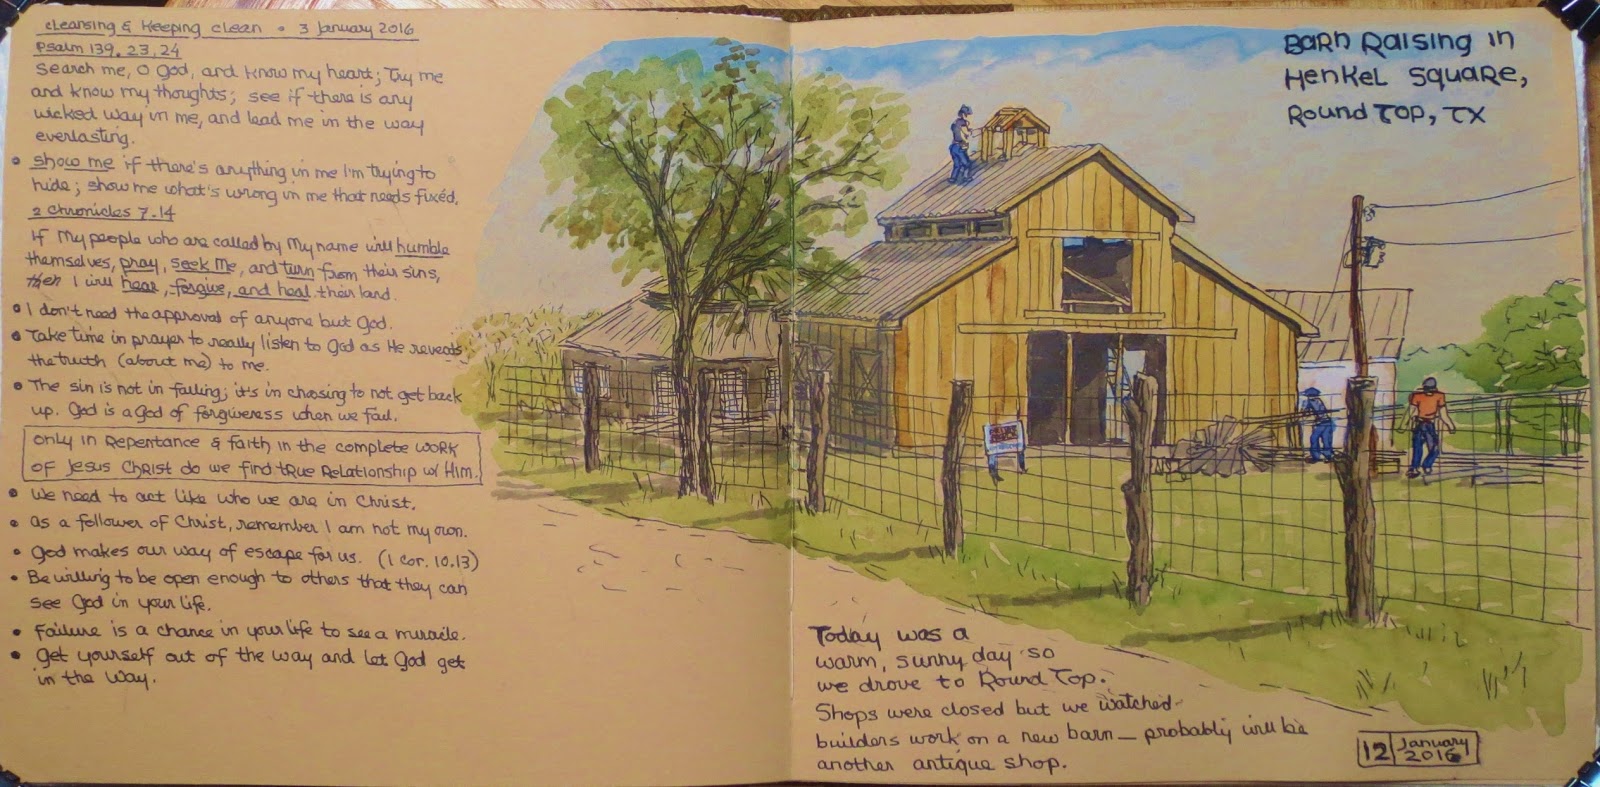 Cleansing & Keeping clean • 3 January 2016
Psalm 139. 23, 24
Search me, O God, and know my heart; Try me
and know my thoughts; see if there is any
wicked way in me, and lead me in the way
everlasting.
• Show me if there's anything in me I'm trying to
hide; show me what's wrong in me that needs fixed.
2 Chronicles 7.14
If My people who are called by My name will humble
themselves, pray, seek Me, and turn from their sins,
then I will hear, forgive, and heal their land.
• I don't need the approval of anyone but God.
• Take time in prayer to really listen to God as He reveals
the truth (about me) to me.
• The sin is not in falling; it's in choosing to not get back
up. God is a God of forgiveness when we fail.
Only in Repentance & faith in the complete work
of Jesus Christ do we find true Relationship w/ Him.
• We need to act like who we are in Christ.
• As a follower of Christ, remember I am not my own.
• God makes our way of escape for us. (1 Cor. 10.13)
• Be willing to be open enough to others that they can
see God in your life.
• Failure is a chance in your life to see a miracle.
• Get yourself out of the way and let God get
in the way.
Barn Raising in
Henkel Square,
Round Top, TX
Today was a
warm, sunny day so
we drove to Round Top.
Shops were closed but we watched
builders work on a new barn — probably will be
another antique shop.
12 January
2016